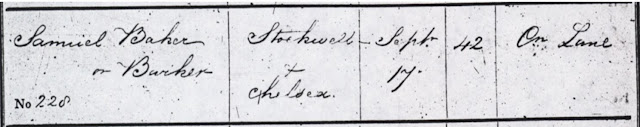 Samuel Baker
or Barker
No 228
Stockwell
+
Chelsea.
Sept.
17.
42
On Lane